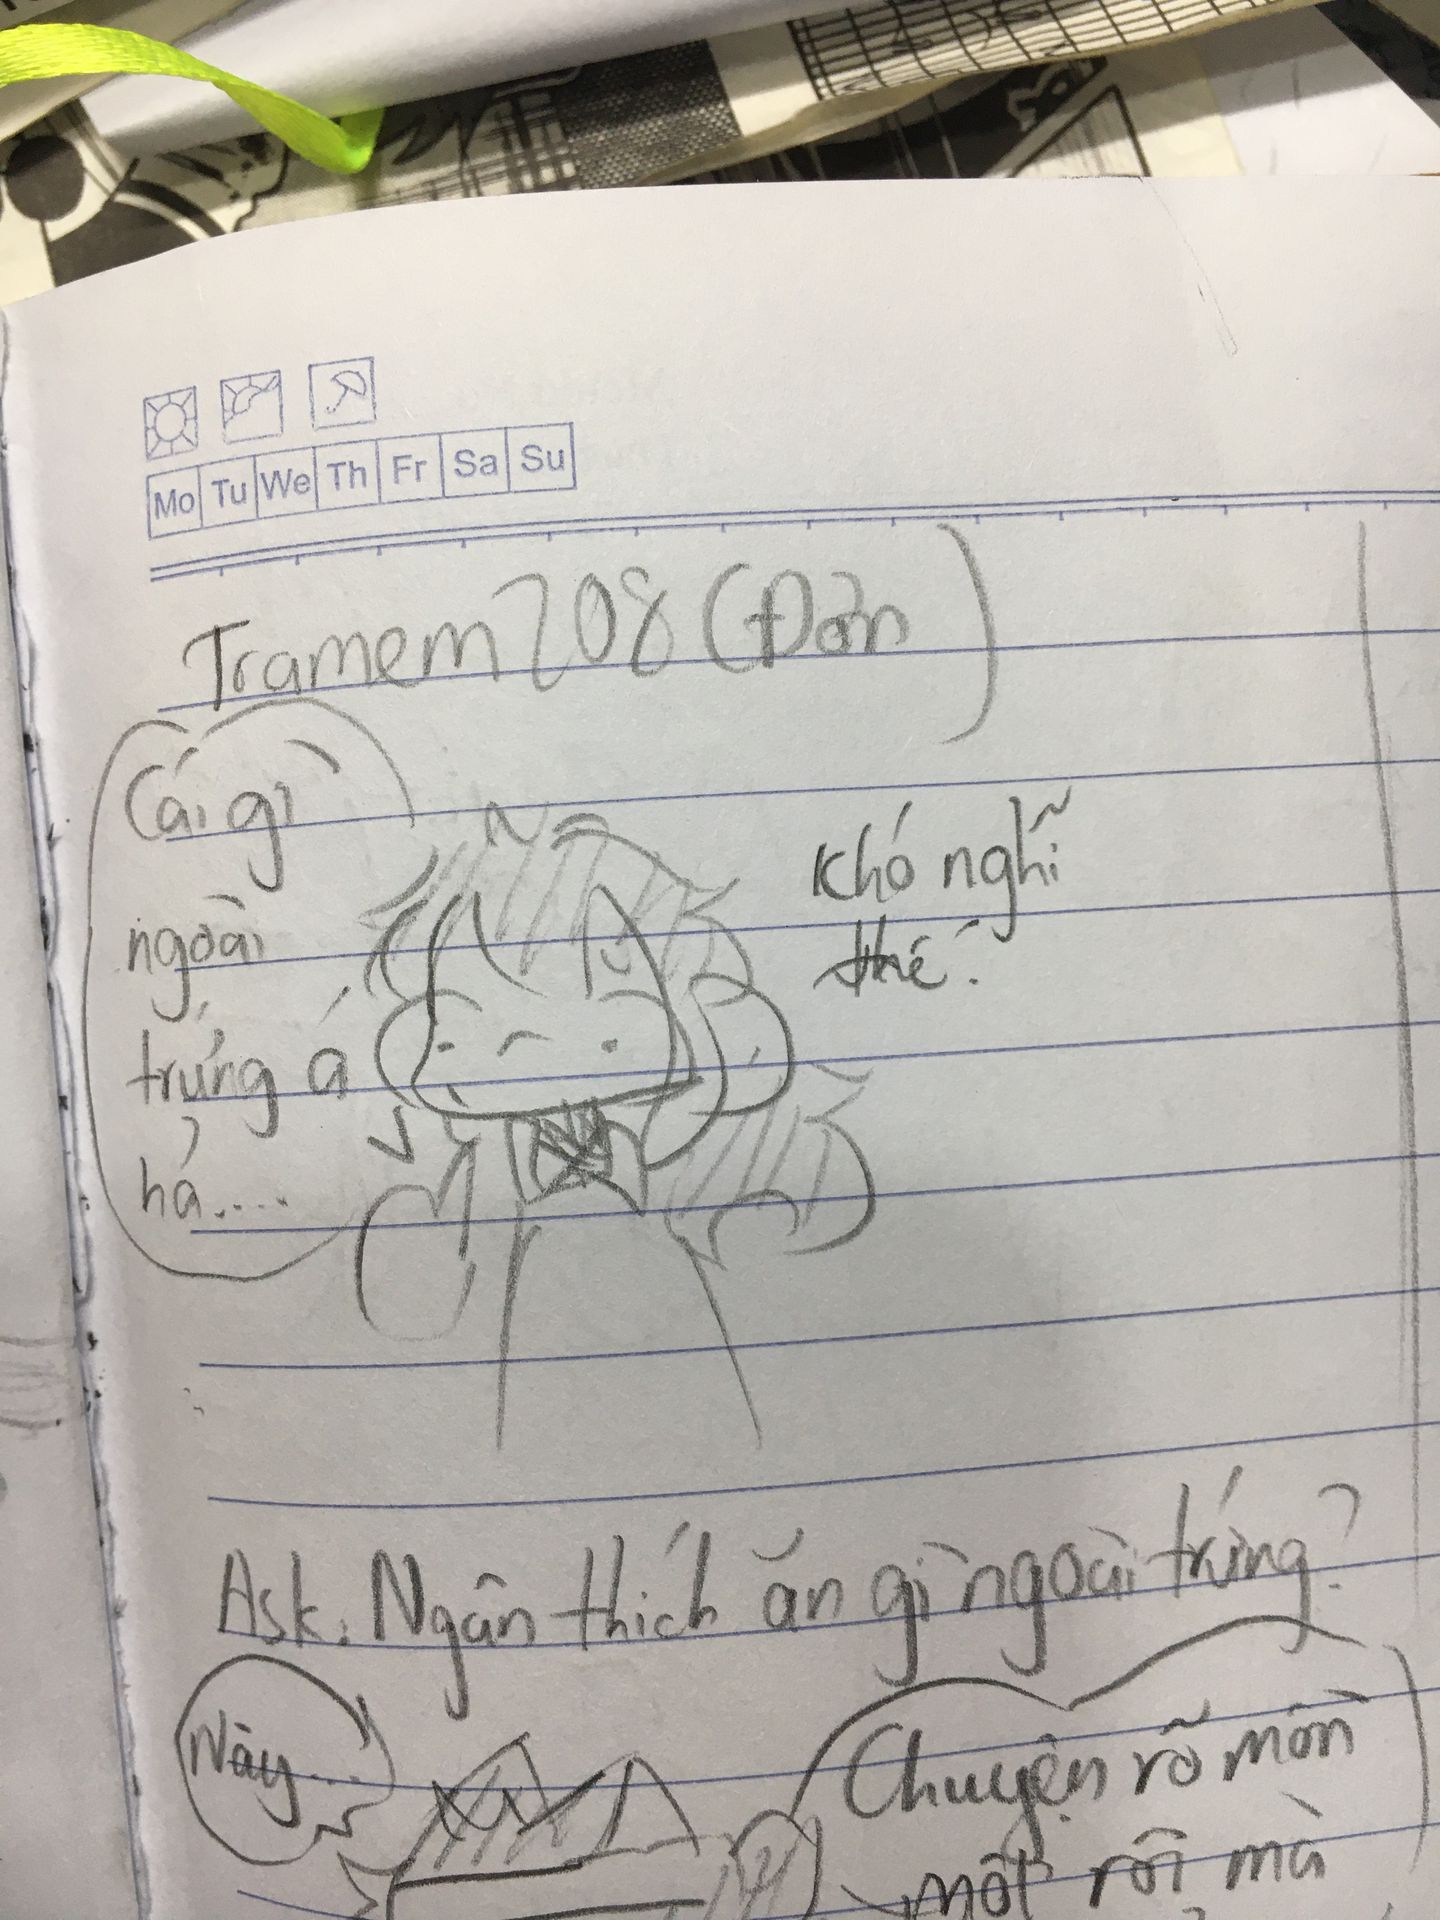 Mo Tu We Th Fr Sa Su
Tramem208 (Đơn)
Cái gì
ngoài
trứng á
hả....
Khó nghĩ
thế.
Ask: Ngân thích ăn gì ngoài trứng?
Này...
Chuyện rõ mồn
một rồi mà